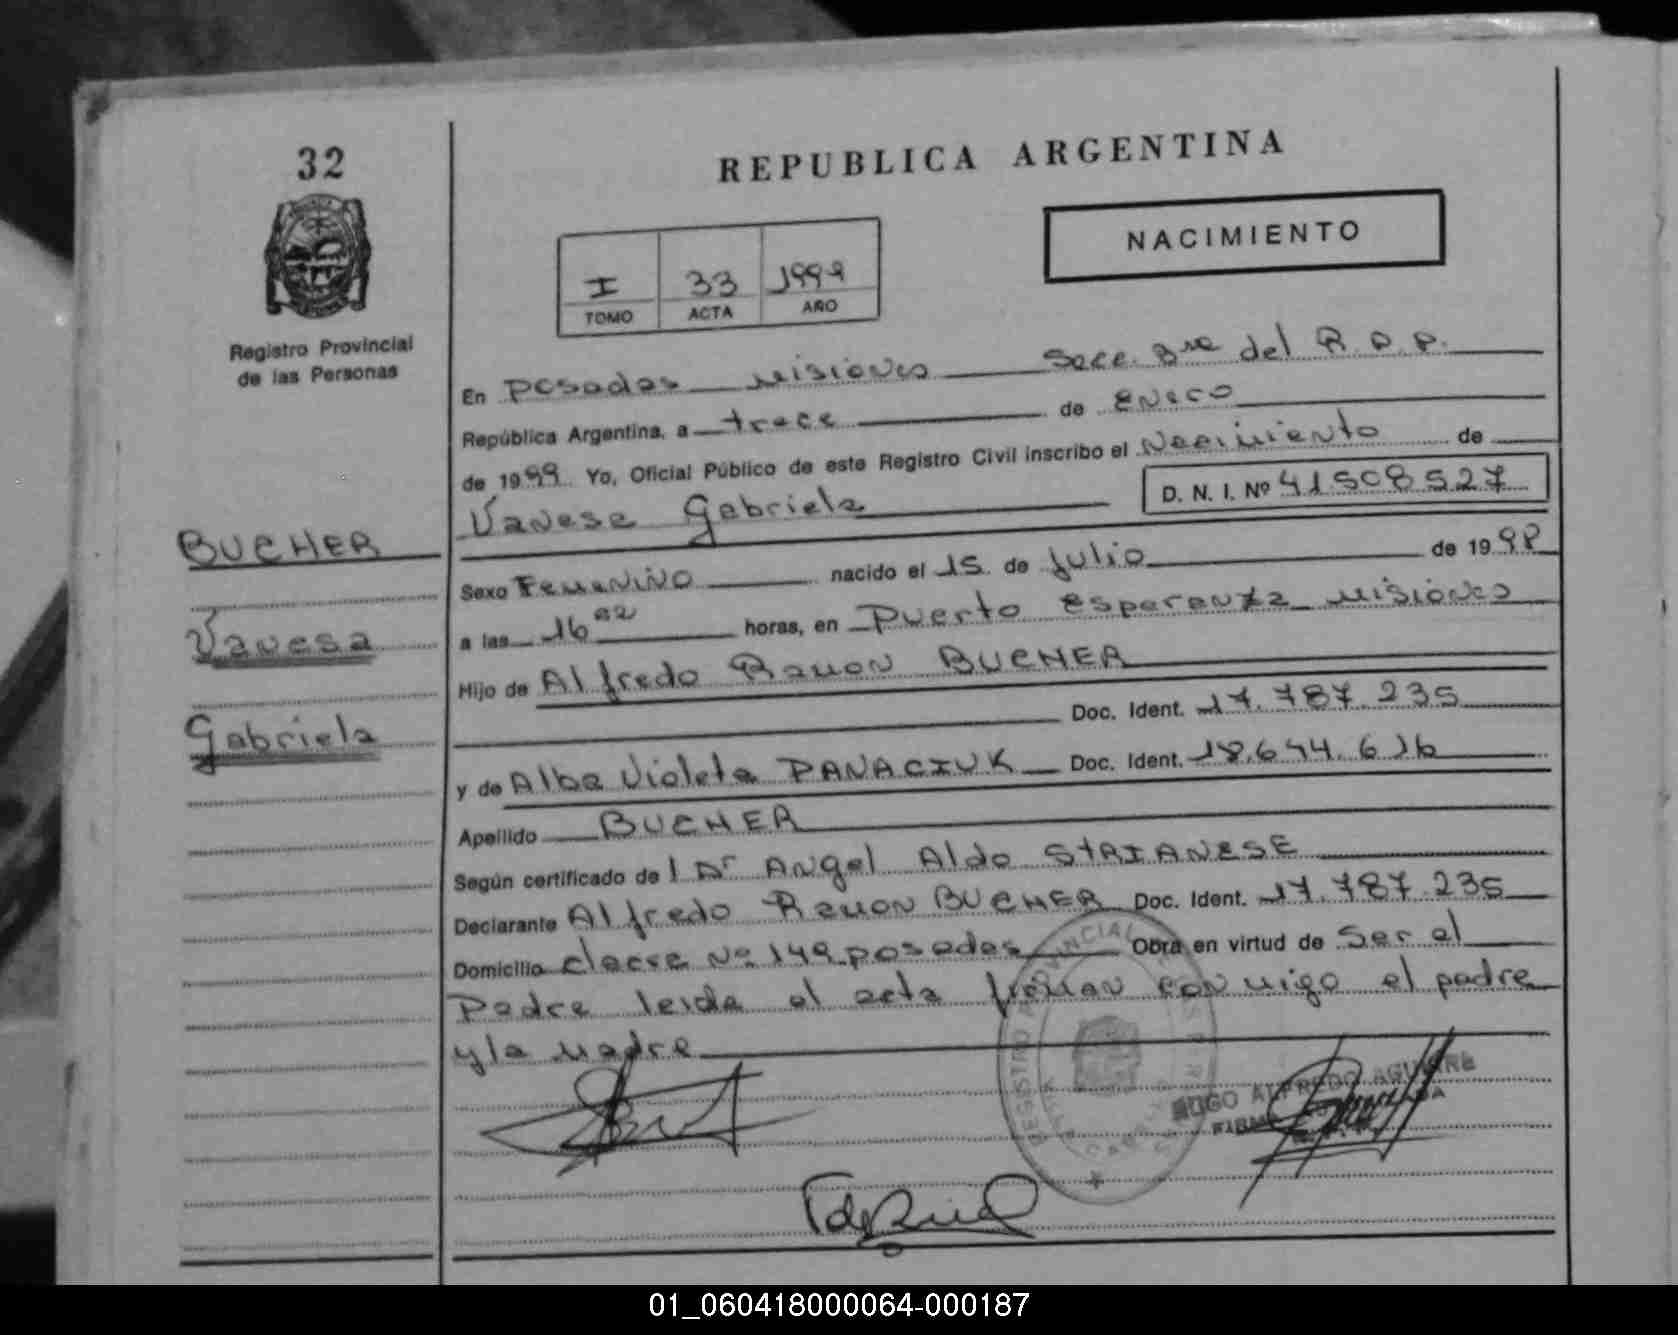 32
REPUBLICA ARGENTINA
NACIMIENTO
I 33 1999
TOMO ACTA AÑO
Registro Provincial
de las Personas
En Posadas Misiones Secc. 3ra del R.P.P.
República Argentina, a trece de Enero
de 1999 Yo, Oficial Público de este Registro Civil inscribo el Nacimiento de
Vanesa Gabriela D. N. I. Nº 41508527
BUCHER
Sexo Femenino nacido el 15 de Julio de 1998
Vanesa
a las 16 02 horas, en Puerto Esperanza Misiones
Hijo de Alfredo Ramon BUCHER
Gabriela
Doc. Ident. 17.787.235
y de Alba Violeta PANACIUK Doc. Ident. 18.644.616
Apellido BUCHER
Según certificado de l Dr Angel Aldo STRIANESE
Declarante Alfredo Ramon BUCHER Doc. Ident. 17.787.235
Domicilio Nº 149 posadas Obra en virtud de Ser el
Padre leida el acta firman conmigo el padre
y la madre
REGISTRO PROVINCIAL
HUGO ALFREDO AGUIRRE
01_060418000064-000187